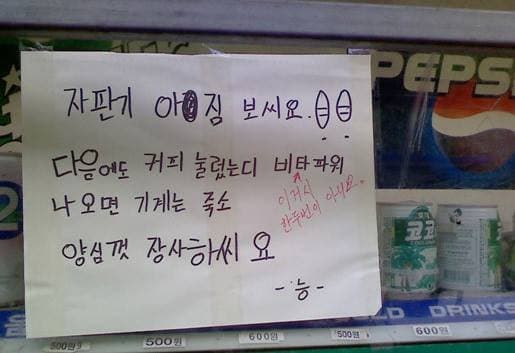 자판기 아짐 보씨요.
다음에도 커피 눌렀는디 비타파워
나오면 기계는 죽소
이거시
한두번이 아니요..
양심껏 장사하씨요
-능-
PEPSI
코코
DRINKS
500원
500원
600원
500원
600원